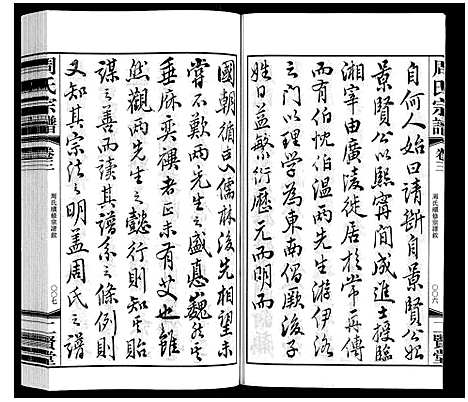 周氏宗譜
卷三
周氏續修宗譜敘
〇〇六
二賢堂
自何人始曰請斷自景賢公始
景賢公以熙甯間成進士授臨
湘宰由廣陵徙居於常再傳
而有伯忱伯溫兩先生游伊洛
之門以理學為東南倡厥後子
姓日益繁衍歷元而明以
國朝碩彥儒林後先相望未
嘗不歎兩先生之盛德巍然
垂麻奕禩者正未有艾也雖
然觀兩先生之懿行則知其貽
謀之善而讀其譜系之條例則
又知其宗法之明蓋周氏之譜
周氏宗譜
卷三
周氏續修宗譜敘
〇〇七
二賢堂